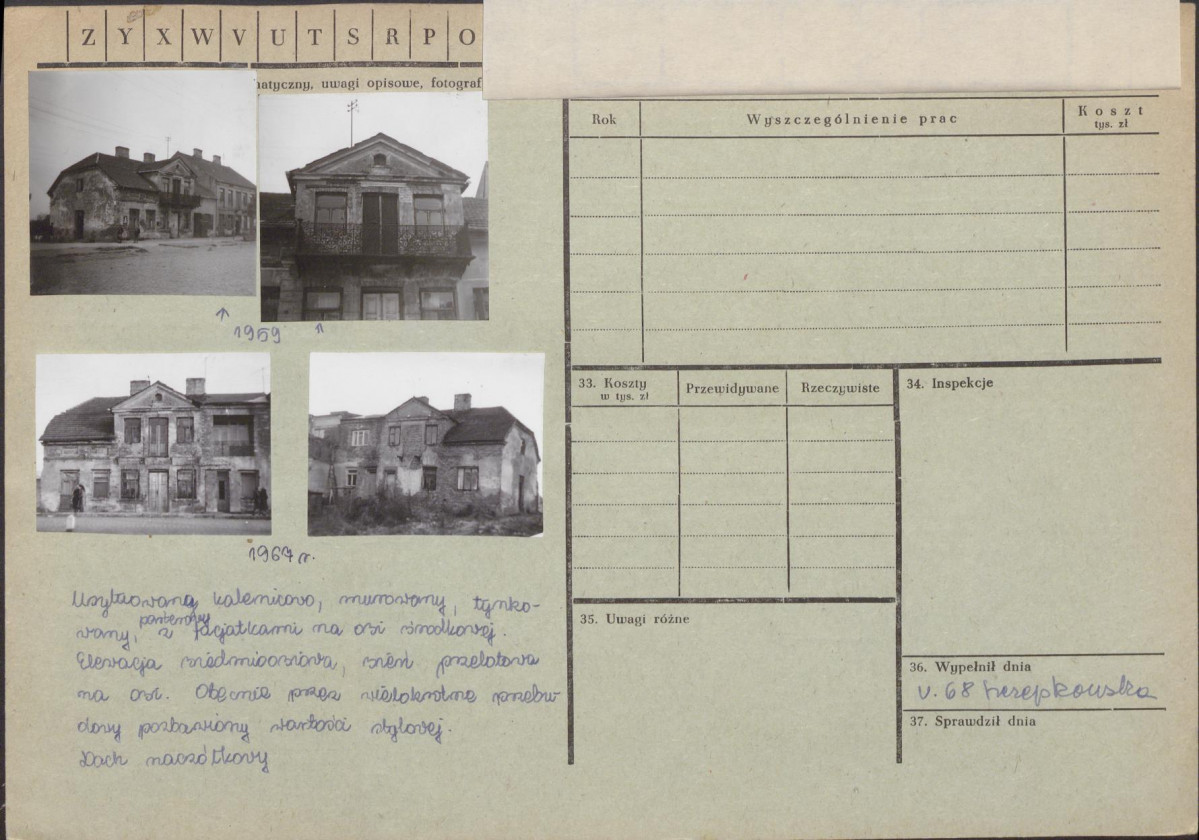 Z Y X W V U T S R P O
matyczny, uwagi opisowe, fotograf
1959
1967 r.
Usytuowany kalenicowo, murowany, tynko-
wany, parterowy z facjatkami na osi środkowej.
Elewacja siedmioosiowa, sień przelotowa
na osi. Obecnie przez wielokrotne przebu
dowy pozbawiony wartości stylowej.
Dach naczółkowy
Rok Wyszczególnienie prac Koszt
tys. zł
33. Koszty Przewidywane Rzeczywiste
w tys. zł
34. Inspekcje
35. Uwagi różne
36. Wypełnił dnia
V. 68
37. Sprawdził dnia